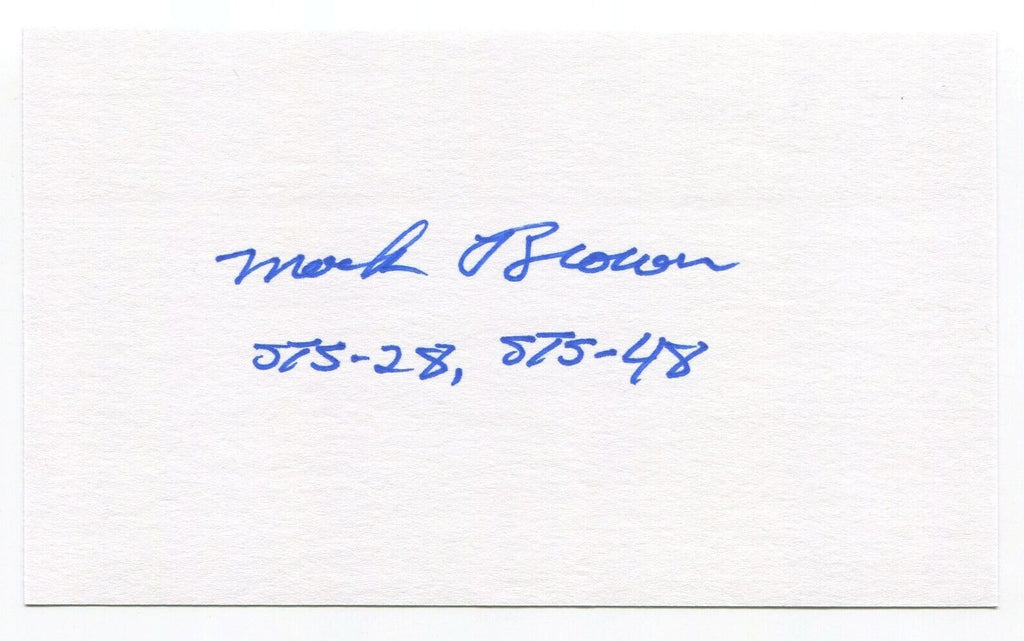 Mark Brown
STS-28, STS-48